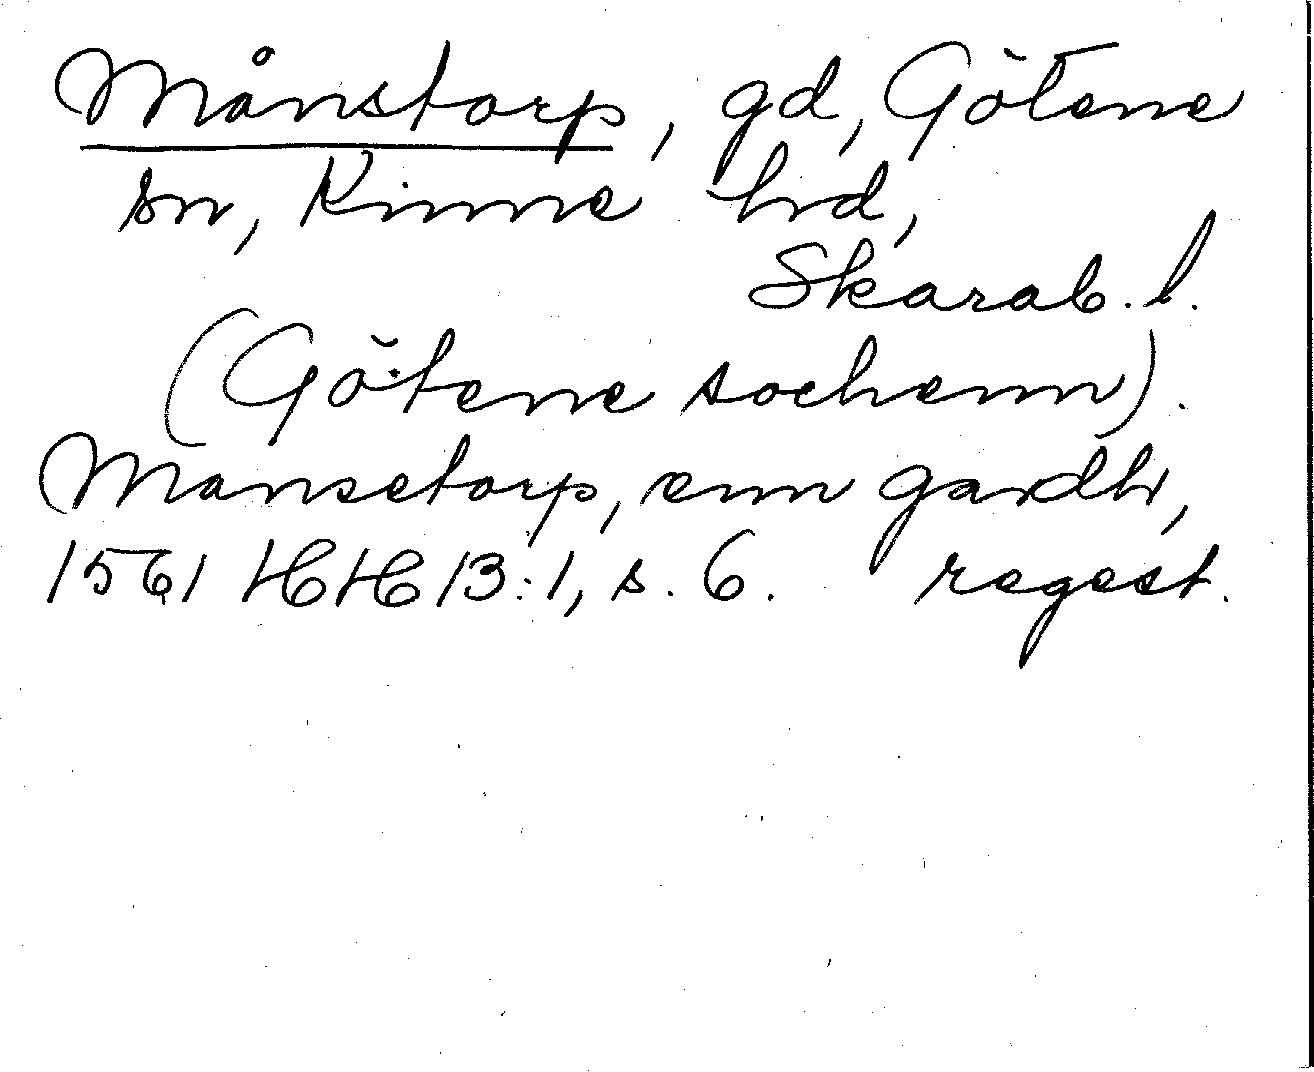 Månstorp, gd, Götene
sn, Kinne hrd,
Skarab. l.
(Götene sochenn).
Mansetorp, enn gardh,
1561 HH 13:1, s. 6. regest.